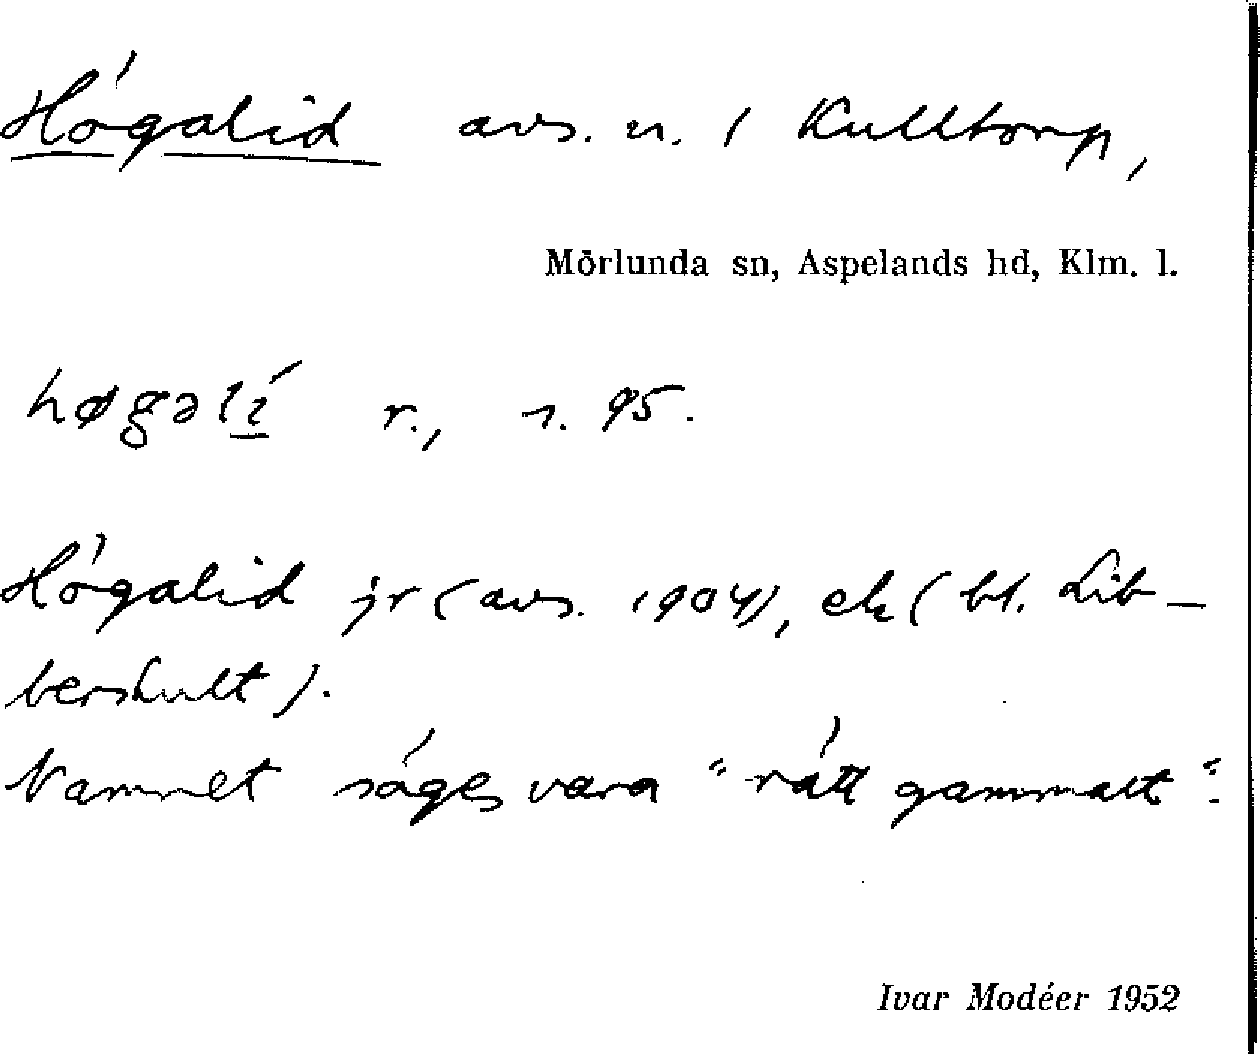 Högalid avs. n. i Kulltorp,
Mörlunda sn, Aspelands hd, Klm. l.
høgəlí r., s. 95.
Högalid jr (avs. 1904), ek (bl. Lib-
bershult).
Namnet säges vara "rätt gammalt".
Ivar Modéer 1952